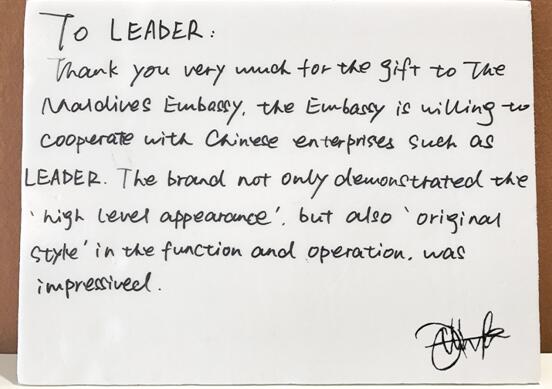 To LEADER:
Thank you very much for the gift to The
Maldives Embassy, the Embassy is willing to
cooperate with Chinese enterprises such as
LEADER. The brand not only demonstrated the
'high level appearance', but also 'original
style' in the function and operation, was
impressived.